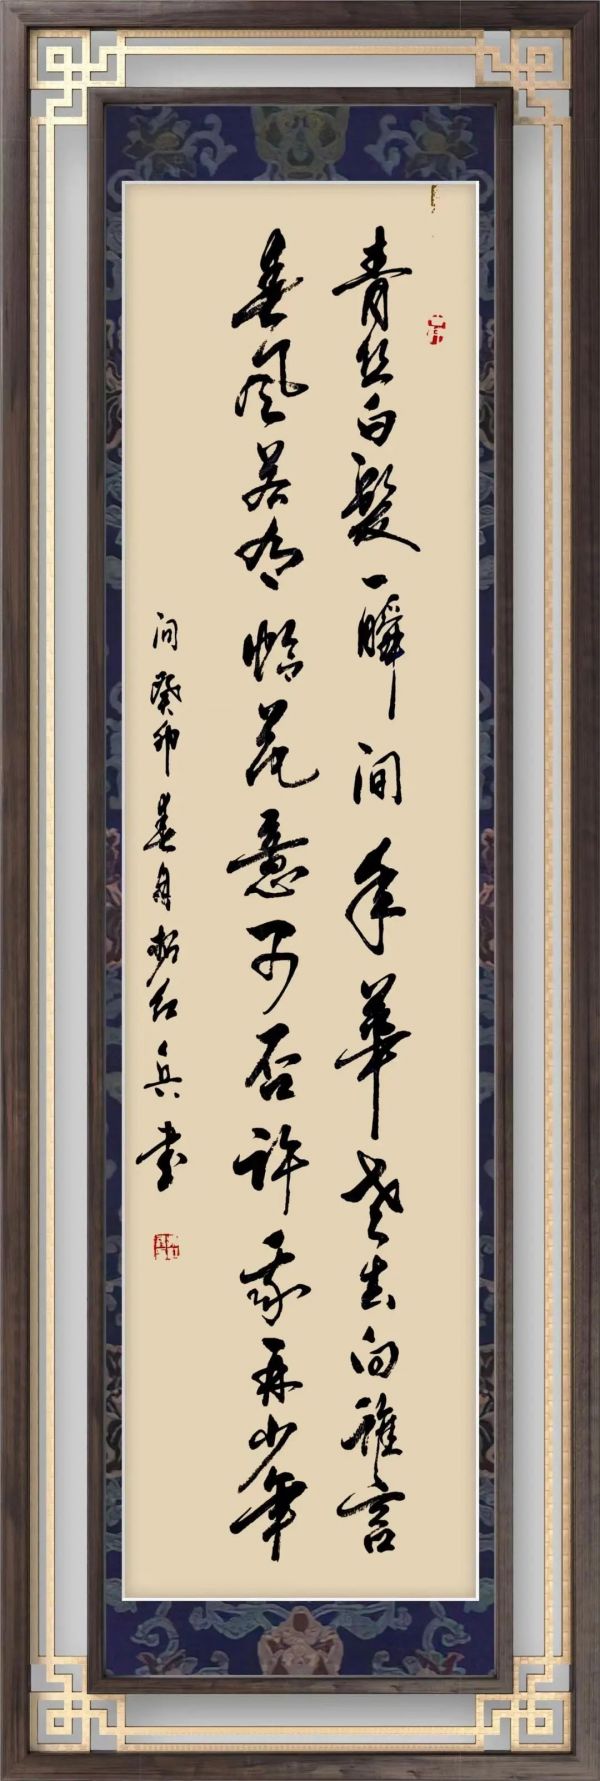 青丝白髮一瞬间年華老去向誰言
春风若有怜花意可否许我再少年
癸卯春月红兵书